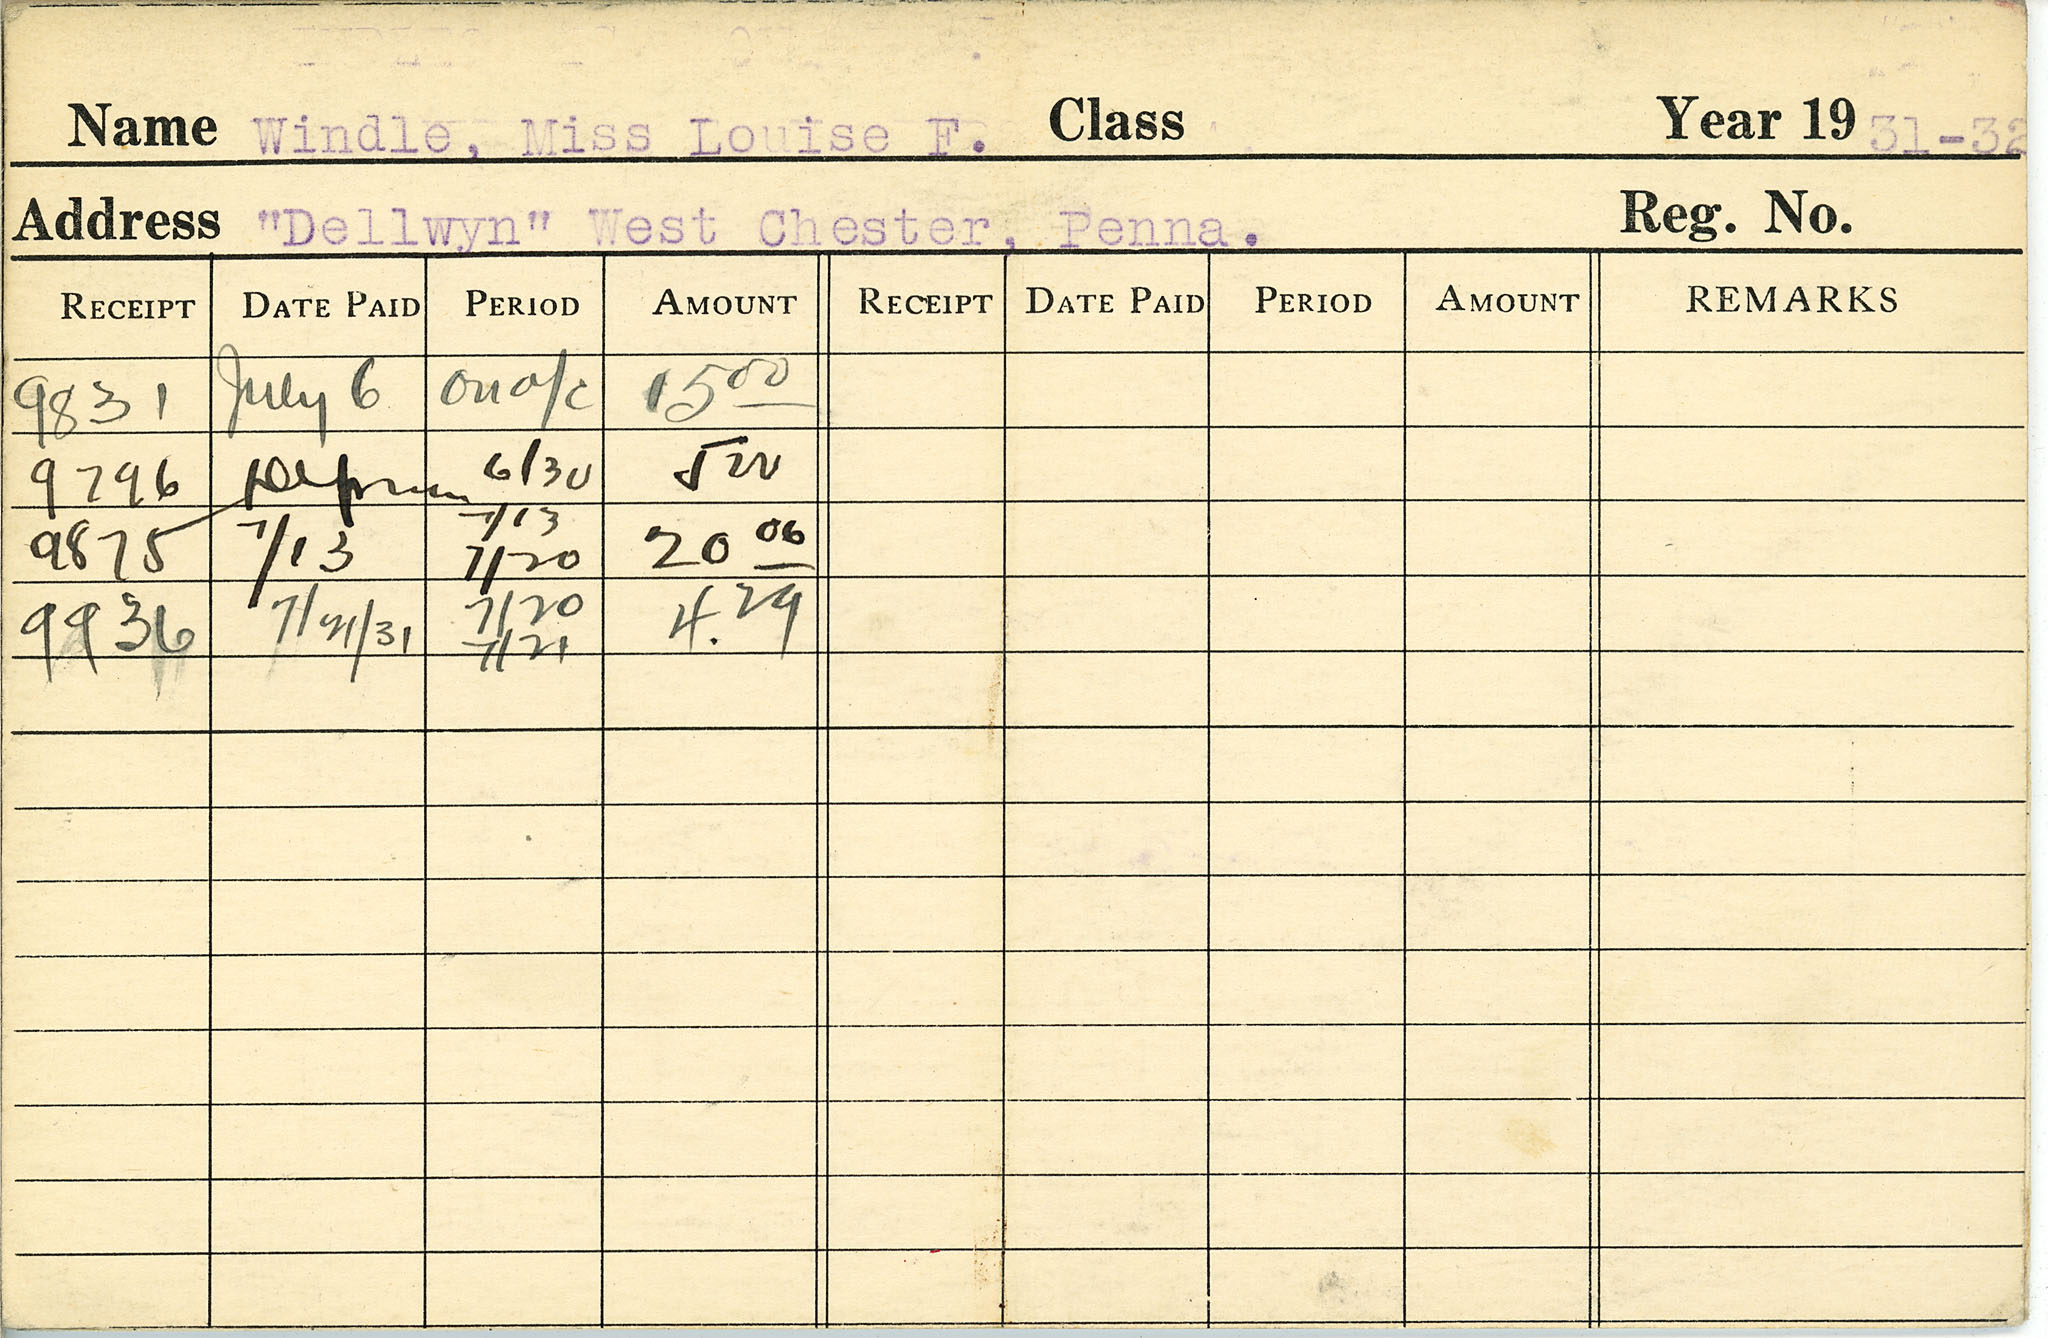 Name Windle, Miss Louise F. Class Year 19 31-32
Address "Dellwyn" West Chester, Penna. Reg. No.
RECEIPT DATE PAID PERIOD AMOUNT RECEIPT DATE PAID PERIOD AMOUNT REMARKS
9831 July 6 on a/c 15 00
9796 6/30 5 00
7/13
9875 7/13 7/20 20 00
7/20
9936 7/21/31 4.29
7/21